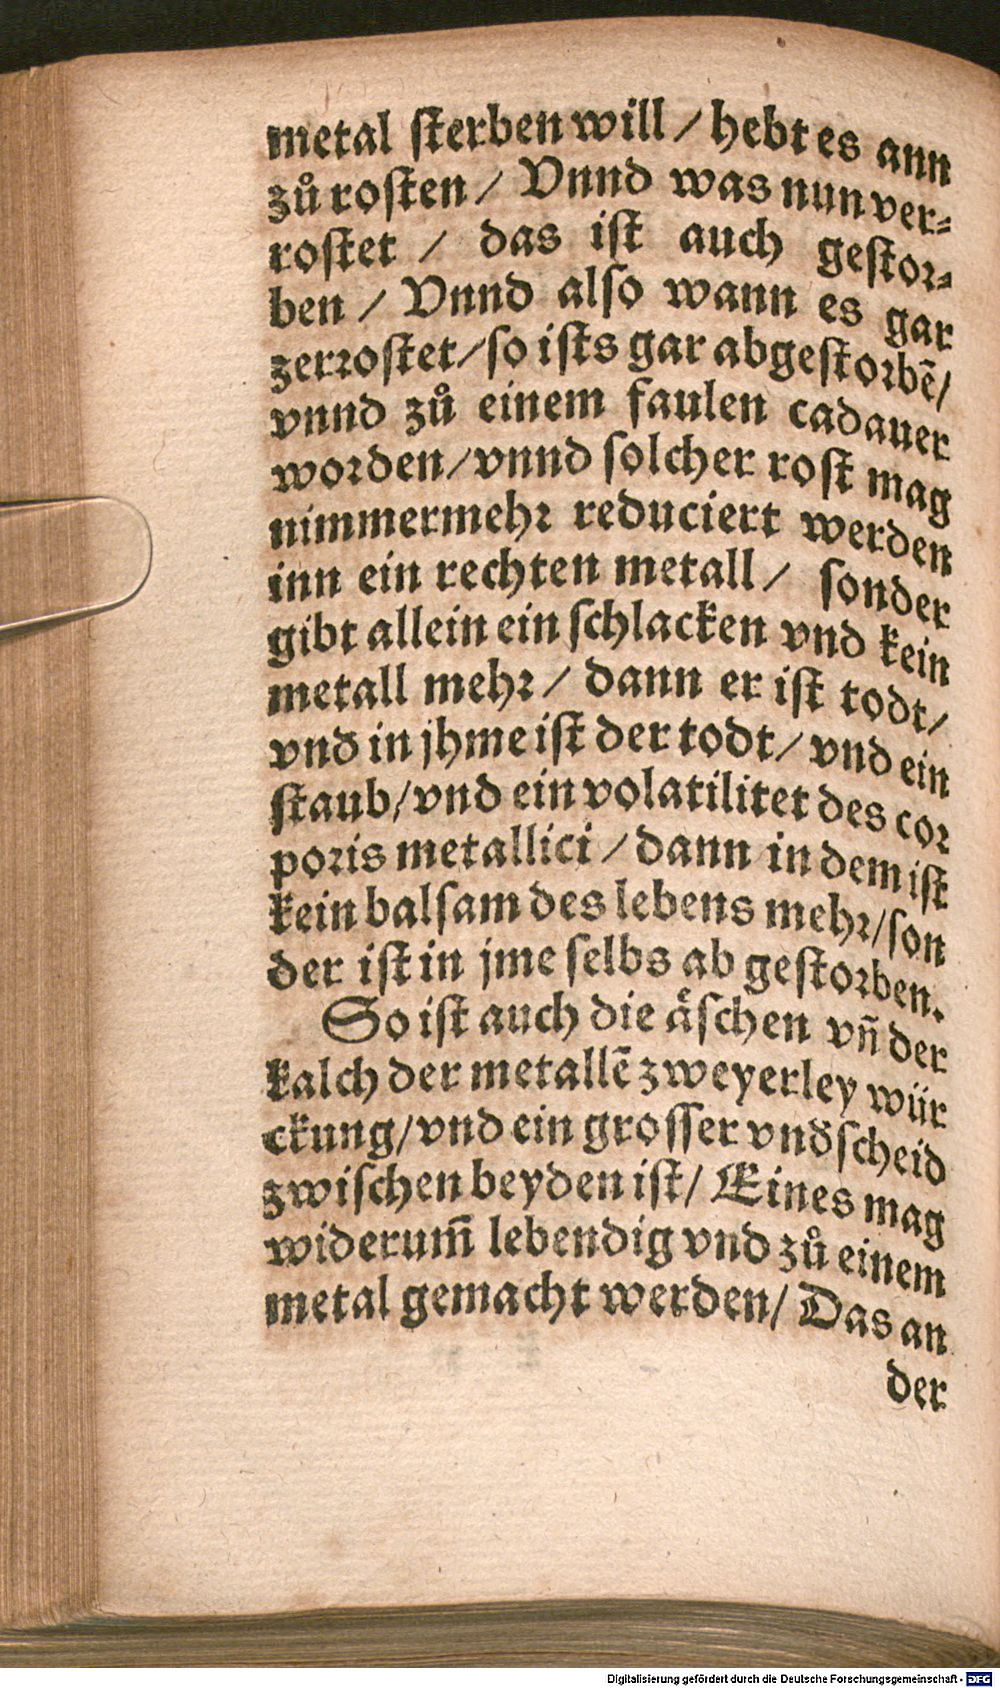 metal ſterben will / hebt es ann
zů roſten / Vnnd was nun ver⸗
roſtet / das iſt auch geſtor⸗
ben / Vnnd alſo wann es gar
zerroſtet / ſo iſts gar abgeſtorbẽ /
vnnd zů einem faulen cadauer
worden / vnnd ſolcher roſt mag
nimmermehr reduciert werden
inn ein rechten metall / ſonder
gibt allein ein ſchlacken vnd kein
metall mehr / dann er iſt todt /
vnd in jhme iſt der todt / vnd ein
ſtaub / vnd ein volatilitet des cor
poris metallici / dann in dem iſt
kein balſam des lebens mehr / ſon
der iſt in jme ſelbs ab geſtorben.
So iſt auch die aͤſchen vñ der
kalch der metallẽ zweyerley wür
ckung / vnd ein groſſer vndſcheid
zwiſchen beyden iſt / Eines mag
widerum̃ lebendig vnd zů einem
metal gemacht werden / Das an
der
Digitalisierung gefördert durch die Deutsche Forschungsgemeinschaft - DFG